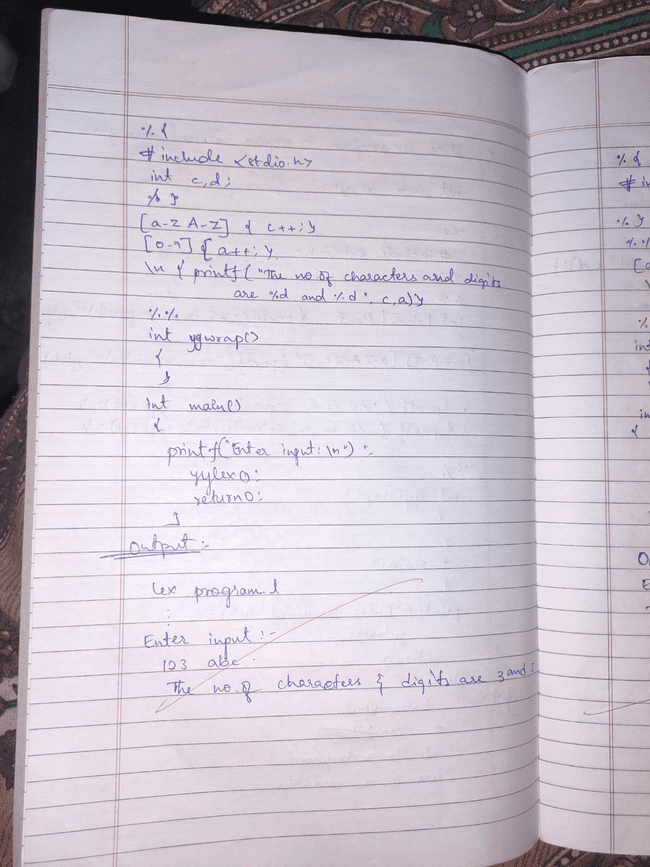 %{
#include <stdio.h>
int c,d;
%}
[a-z A-Z] { c++; }
[0-9] { a++; }
\n { printf("The no of characters and digits
are %d and %d", c,a)}
%%
int yywrap()
{
}
int main()
{
printf("Enter input: \n");
yylex();
return0;
}
Output:-
lex program.l
:
Enter input :-
123 abc
The no. of characters & digits are 3 and
%{
%}
%%
int
{
{